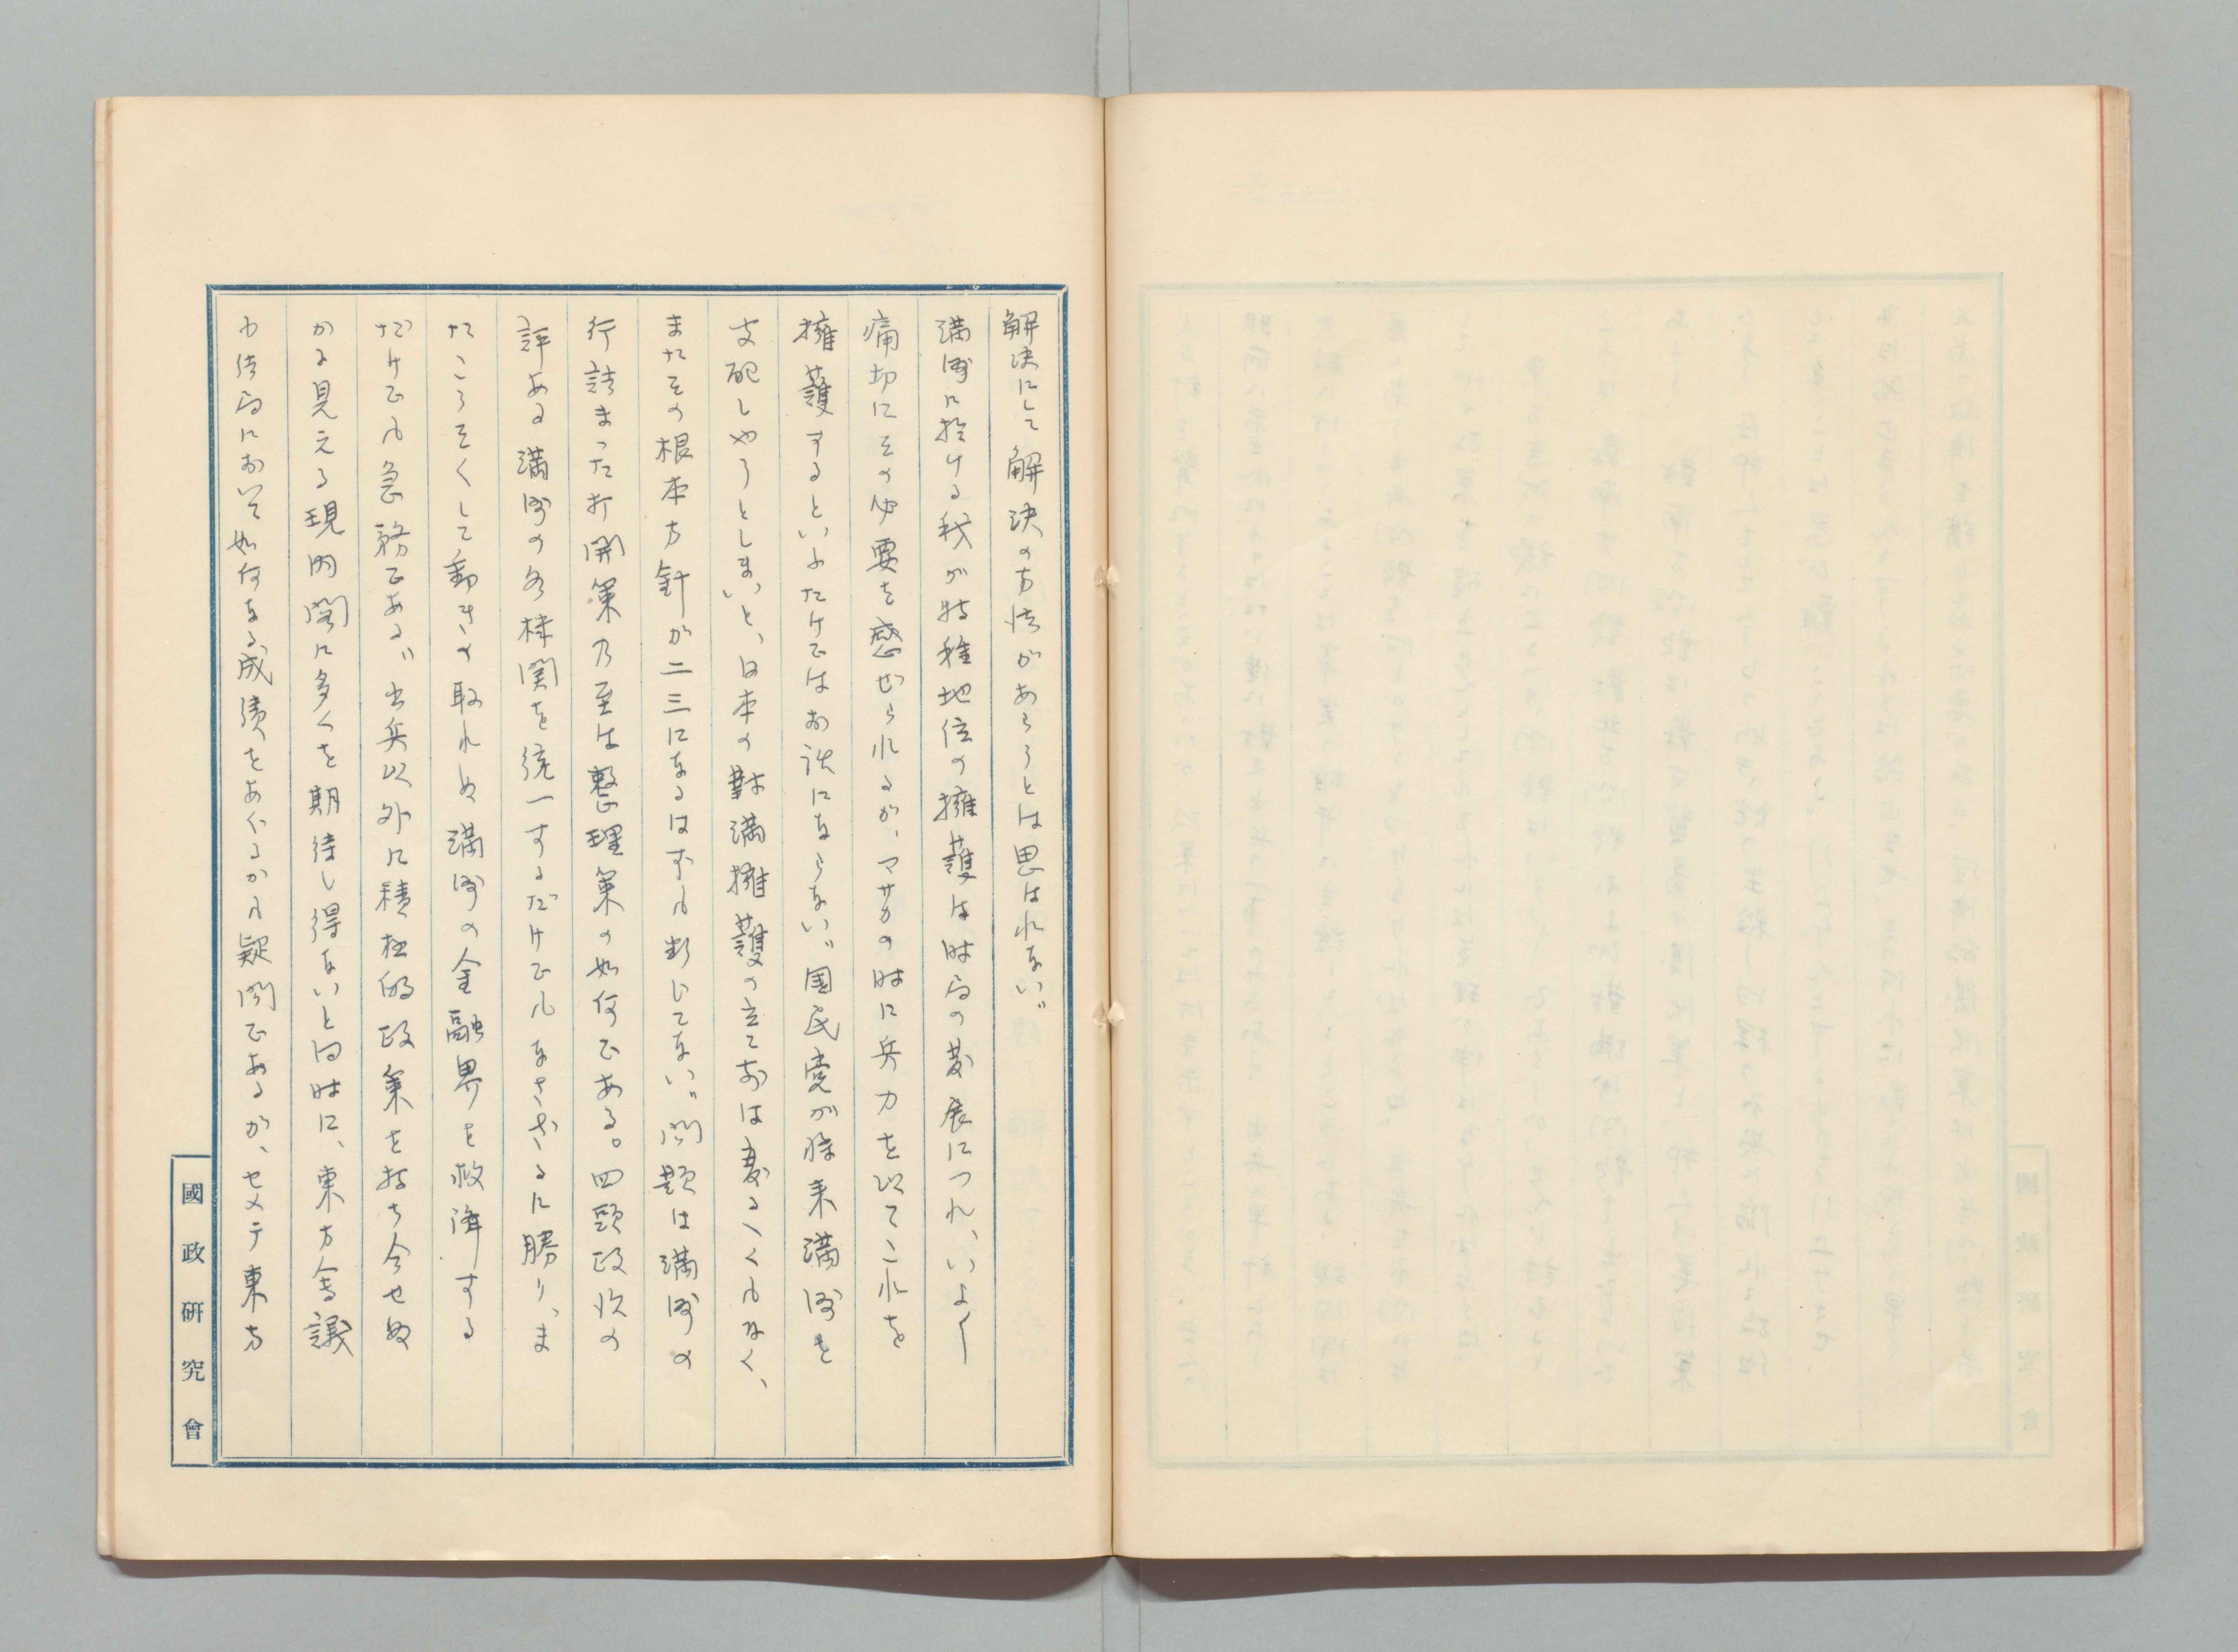 解決にして解決の方法があらうとは思はれない。
満洲に於ける我が特種地位の擁護は時局の発展につれ、いよ〱
痛切にその必要を感ぜられるが、マサカの時に兵力を以てこれを
擁護するといふたけではお話にならない。国民党が将来満洲を
支配しやうとしまいと、日本の対満擁護の立てまへは変るべくもなく、
またその根本方針が二三になるはずも断じてない。問題は満洲の
行詰まった打開策乃至は整理策の如何である。四頭政治の
評ある満洲の各機関を統一するだけでもなさざるに勝り、ま
たこうそくして動きの取れぬ満洲の金融界を救済する
だけでも急務である。出兵以外に積極的政策を持ち合せぬ
かに見える現内閣に多くを期待し得ないと同時に、東方会議
の結局において如何なる成績をあぐるかも疑問であるが、セメテ東方
國政研究會